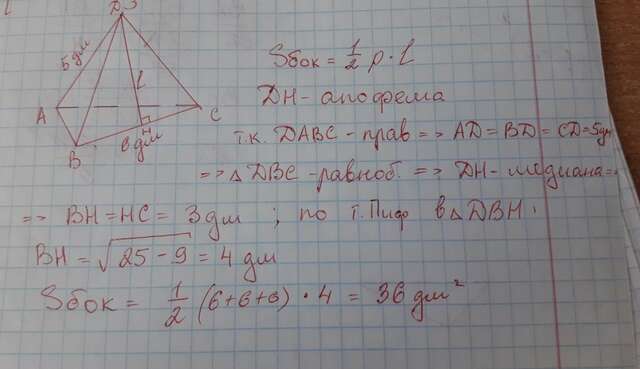 D
5 дм
l
A
C
H
B
6 дм
Sбок = 1/2 p · l
DH - апофема
т.к. DABC - прав => AD = BD = CD = 5дм
=> △ DBC - равноб. => DH - медиана =>
=> BH = HC = 3 дм ; по т. Пиф в △ DBH :
BH = √25 - 9 = 4 дм
Sбок = 1/2 (6+6+6) · 4 = 36 дм²